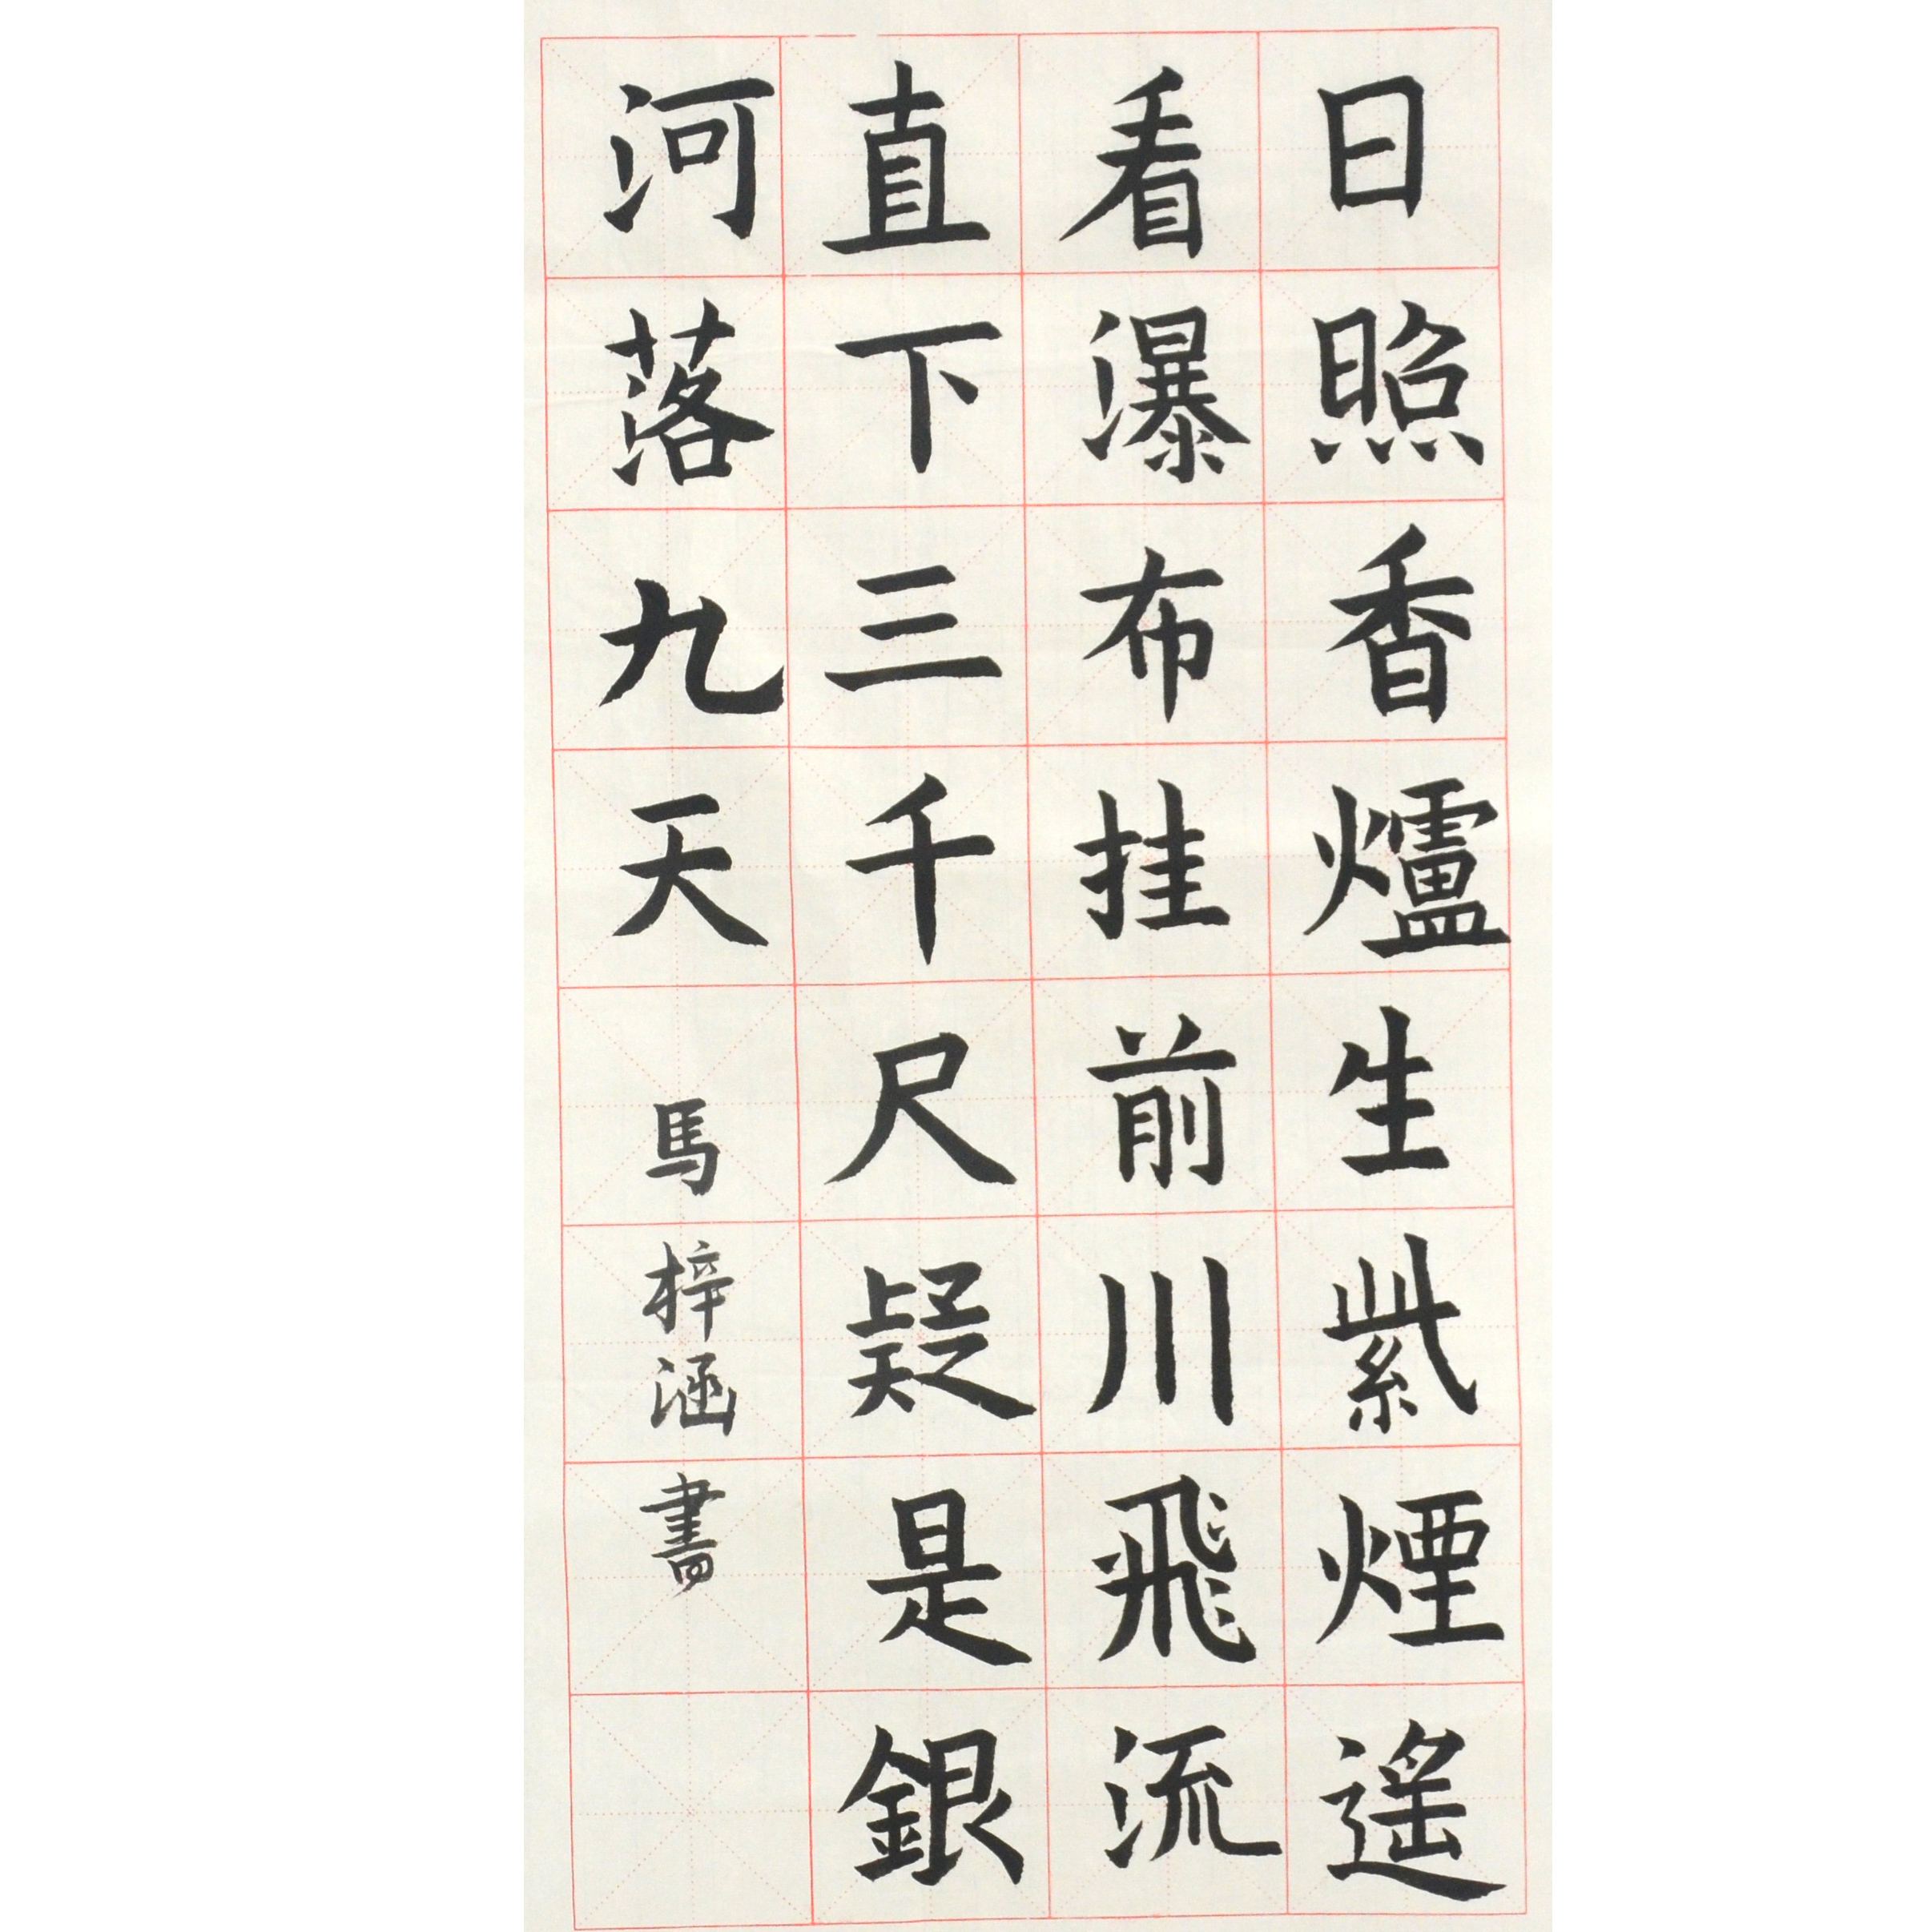 日照香爐生紫煙遙
看瀑布挂前川飛流
直下三千尺疑是銀
河落九天 馬梓涵書